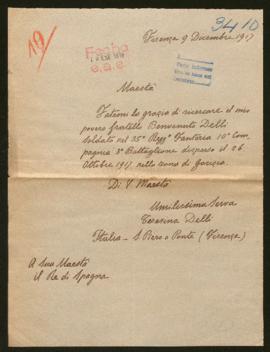 19
3410
Fecha
Firenze 9 Dicembre 1917
Maestà
Fatemi la grazia di ricercare il mio
povero fratello Benvenuto Delli
soldato nel 35° Regg° Fanteria 10ª Com
pagnia 3° Battaglione disperso il 26
Ottobre 1917 nella zona di Gorizia.
Di V. Maestà
Umilissima Serva
Teresina Delli
Italia - S. Piero a Ponte (Firenze)
A Sua Maestà
Il Re di Spagna